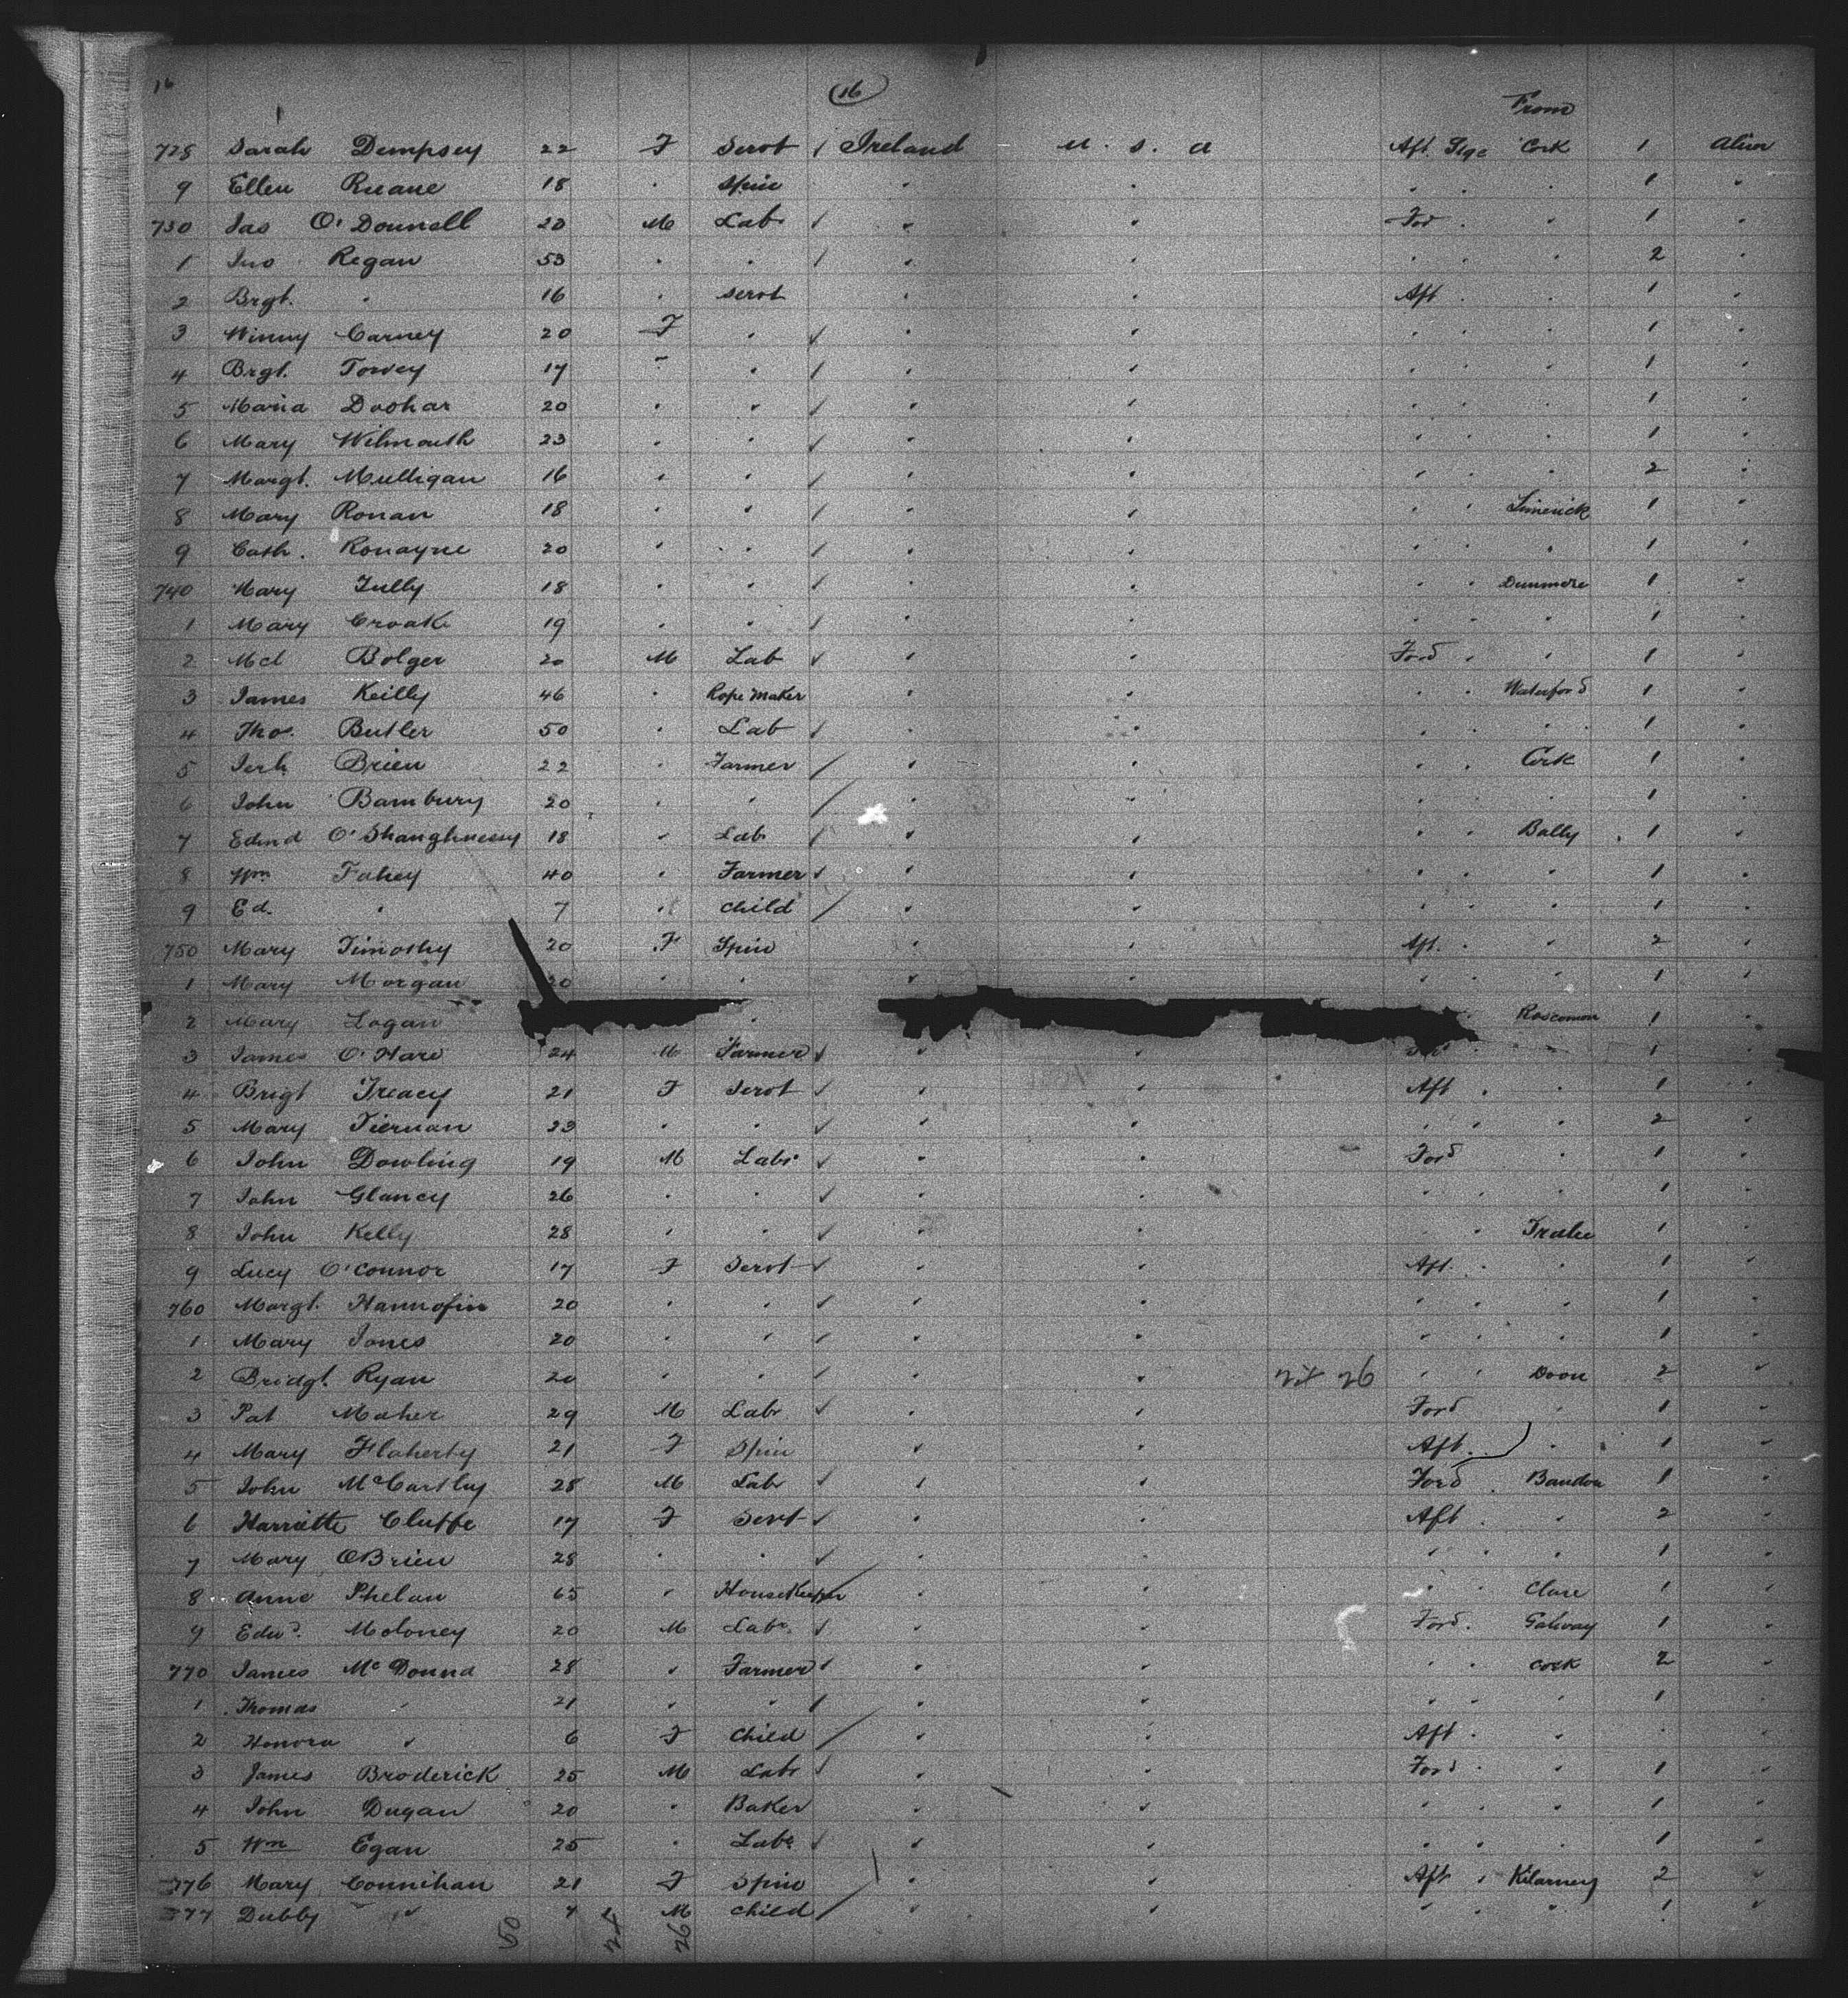 16 (16)
From
728 Sarah Dempsey 22 F Servt / Ireland U. S. A Aft. Stge Cork 1 Alive
9 Ellen Ruane 18 " Spin " " " " " 1 "
730 Jas O'Donnell 20 M Lab / " " Ford " " 1 "
1 Jno Regan 53 " " / " " " " " 2 "
2 Brgt. " 16 " Servt " " Aft " " 1 "
3 Winny Carney 20 F " / " " " " " 1 "
4 Brgt. Towey 17 " " / " " " " " 1 "
5 Maria Doohar 20 " " / " " " " " 1 "
6 Mary Wilmouth 23 " " / " " " " " 1 "
7 Margt. Mulligan 16 " " / " " " " " 2 "
8 Mary Ronan 18 " " / " " " " Limerick 1 "
9 Cath. Ronayne 20 " " / " " " " " 1 "
740 Mary Tully 18 " " / " " " " Dunmore 1 "
1 Mary Croake 19 " " / " " " " " 1 "
2 Mcl Bolger 20 M Lab / " " Ford " " 1 "
3 James Keilly 46 " Rope Maker " " " " Waterford 1 "
4 Thos. Butler 50 " Lab / " " " " " 1 "
5 Jerh Brien 22 " Farmer / " " " " Cork 1 "
6 John Bambury 20 " " / " " " " " 1 "
7 Edmd O'Shaughnessy 18 " Lab / " " " " Bally 1 "
8 Wm Fahey 40 " Farmer / " " " " " 1 "
9 Ed. " 7 " Child / " " " " " 1 "
750 Mary Timothy 20 F Spin " " Aft. " " 2 "
1 Mary Morgan 20 " " " " " " " 1 "
2 Mary Logan " " Roscommon 1 "
3 James O'Hare 24 M Farmer / " " " " 1 "
4 Brigt Treacy 21 F Servt / " " Aft " " 1 "
5 Mary Tiernan 23 " " / " " " " " 2 "
6 John Dowling 19 M Labr / " " Ford " 1 "
7 John Glancy 26 " " / " " " " " 1 "
8 John Kelly 28 " " / " " " " Tralee 1 "
9 Lucy O'Connor 17 F Servt / " " Aft. " " 1 "
760 Margt. Hannofin 20 " " / " " " " " 1 "
1 Mary Jones 20 " " / " " " " " 1 "
2 Bridgt. Ryan 20 " " / " " 24 26 " " Doon 2 "
3 Pat Maher 29 M Labr / " " Ford " 1 "
4 Mary Flaherty 21 F Spin " " Aft. " " 1 "
5 John McCarthy 28 M Lab / " " Ford " Bandon 1 "
6 Harriette Cluffe 17 F Servt / " " Aft " " 2 "
7 Mary OBrien 28 " " / " " " " " 1 "
8 Anne Phelan 65 " Housekeeper / " " " " Clare 1 "
9 Edwd. Moloney 20 M Labr. / " " Ford. Galway 1 "
770 James McDonna 28 " Farmer / " " " " Cork 2 "
1 Thomas " 21 " " / " " " " " 1 "
2 Honora " 6 F Child / " " Aft " " " "
3 James Broderick 25 M Labr / " " Ford " " 1 "
4 John Dugan 20 " Baker " " " " " 1 "
5 Wm Egan 25 " Labr / " " " " " 1 "
776 Mary Connihan 21 F Spin " " Aft " Kilarney 2 "
777 Dubby " 7 M Child / " " " " " 1 "
50 24 26